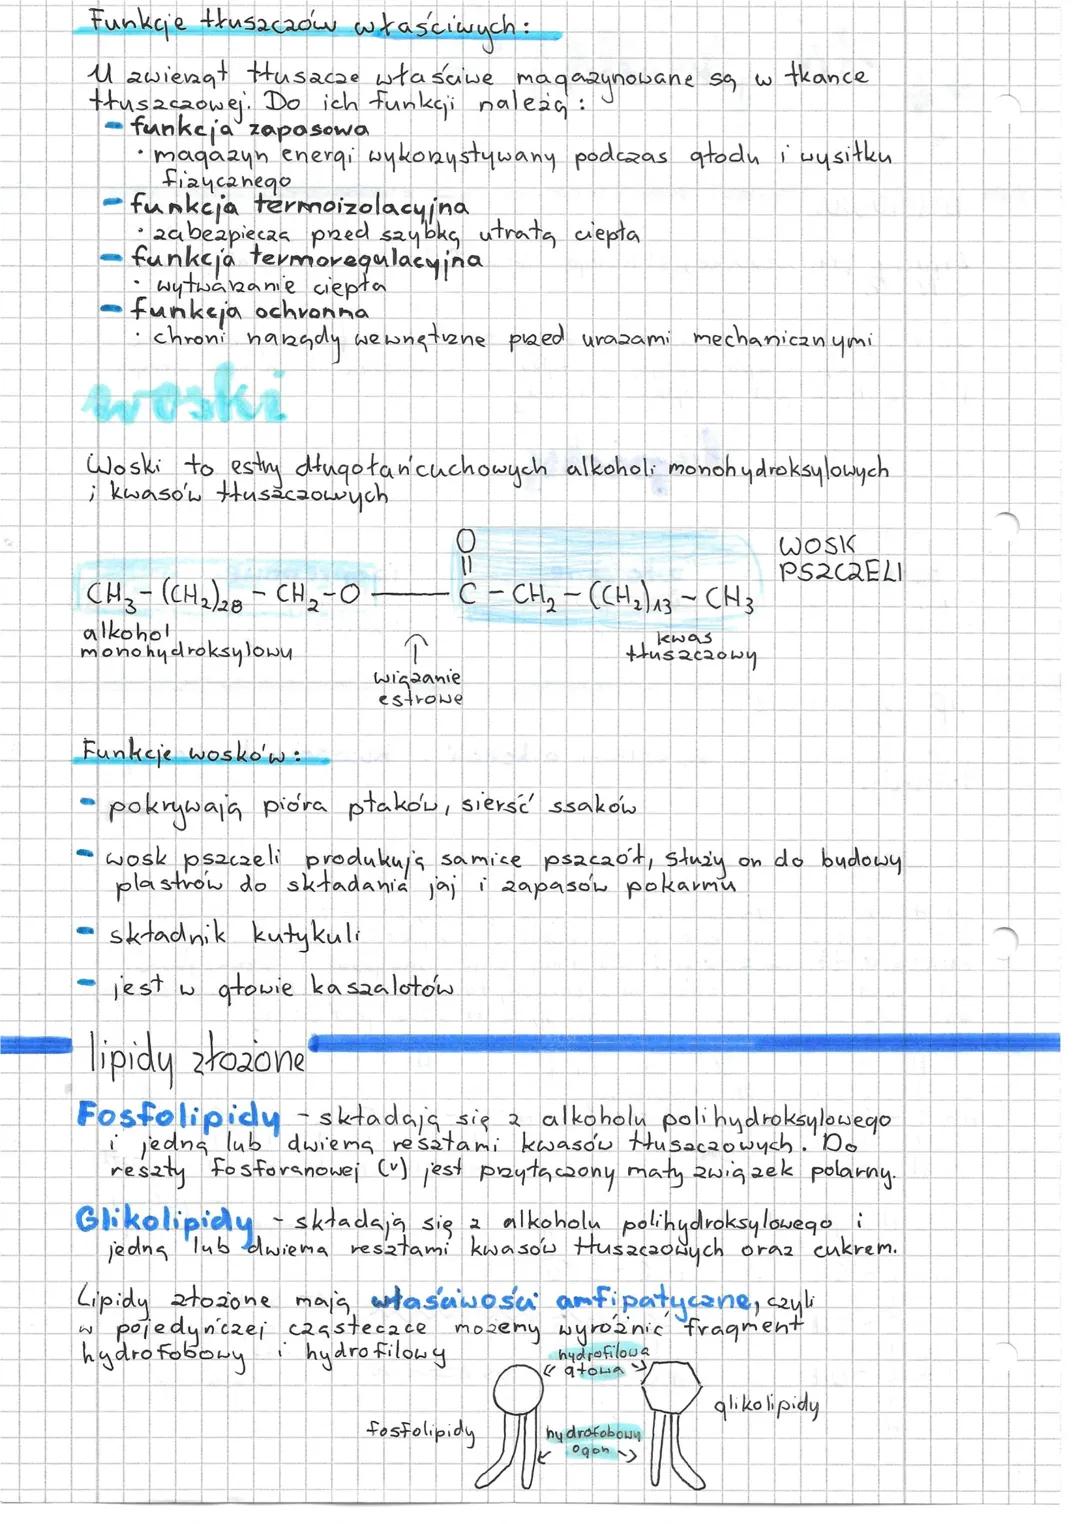 Funkcje tłuszczów właściwych:
U zwierząt tłuszcze właściwe magazynowane są w tkance
tłuszczowej. Do ich funkcji należą:
- funkcja zapasowa
· magazyn energi wykorzystywany podczas głodu i wysiłku
fizycznego
- funkcja termoizolacyjna
· zabezpiecza przed szybką utratą ciepła
- funkcja termoregulacyjna
· wytwarzanie ciepła
- funkcja ochronna
· chroni narządy wewnętrzne przed urazami mechanicznymi
woski
Woski to estry długołańcuchowych alkoholi monohydroksylowych
i kwasów tłuszczowych
O
||
WOSK
PSZCZELI
CH3-(CH2)28-CH2-O — C-CH2-((CH2)13-CH3
alkohol
monohydroksylowy
↑
wiązanie
estrowe
kwas
tłuszczowy
Funkcje wosków:
- pokrywają pióra ptaków, sierść ssaków
- wosk pszczeli produkują samice pszczół, służy on do budowy
plastrów do składania jaj i zapasów pokarmu
- składnik kutykuli
- jest w głowie kaszalotów
lipidy złożone
Fosfolipidy - składają się z alkoholu polihydroksylowego
i jedną lub dwiema resztami kwasów tłuszczowych. Do
reszty fosforanowej (v) jest przyłączony mały związek polarny.
Glikolipidy - składają się z alkoholu polihydroksylowego i
jedną lub dwiema resztami kwasów tłuszczowych oraz cukrem.
Lipidy złożone mają właściwości amfipatyczne, czyli
w pojedyńczej cząsteczce możemy wyróżnić fragment
hydrofobowy i hydrofilowy
hydrofilowa
głowa
glikolipidy
fosfolipidy
hydrofobowy
ogon